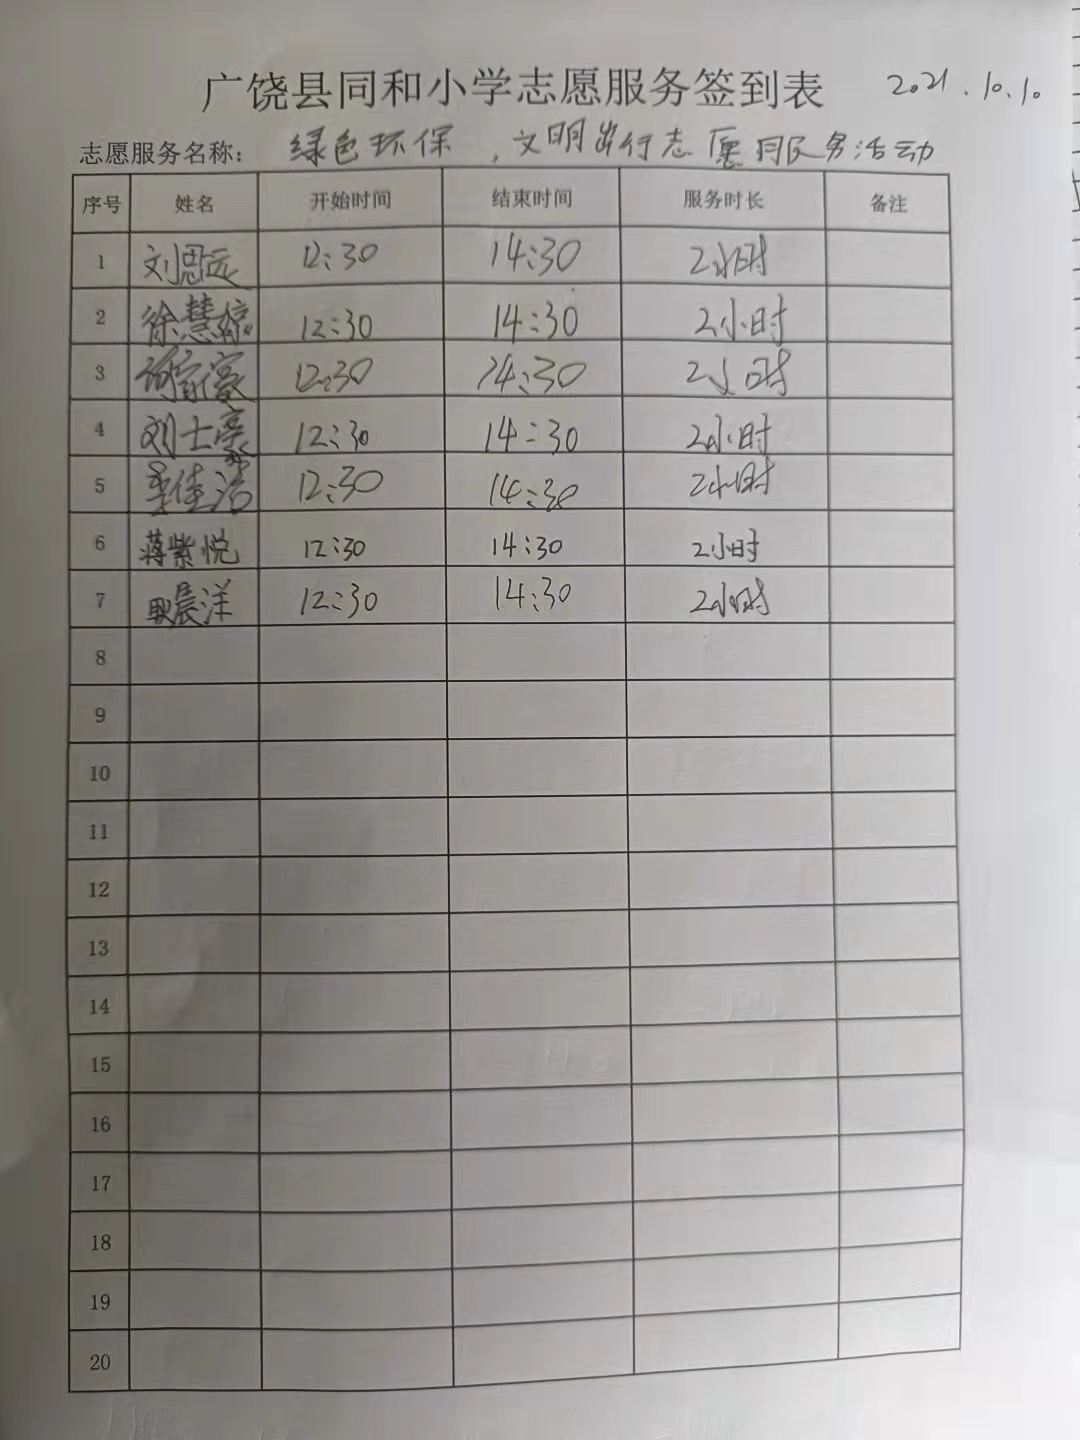 广饶县同和小学志愿服务签到表 2021.10.10
志愿服务名称： 绿色环保，文明出行志愿服务活动
序号 姓名 开始时间 结束时间 服务时长 备注
1 刘思远 12:30 14:30 2小时
2 徐慧婷 12:30 14:30 2小时
3 家豪 12:30 14:30 2小时
4 刘士豪 12:30 14:30 2小时
5 李佳浩 12:30 14:30 2小时
6 蒋紫悦 12:30 14:30 2小时
7 耿晨洋 12:30 14:30 2小时
8
9
10
11
12
13
14
15
16
17
18
19
20